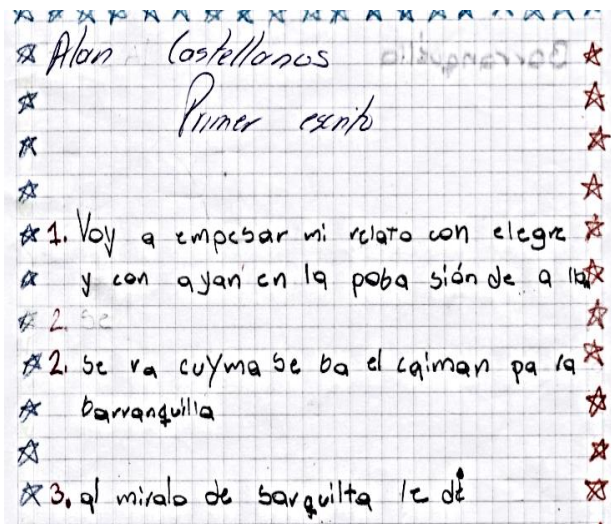 Alan Castellanos
Primer escrito
1. Voy a empesar mi relato con elegre
y con ayan en la poba sión de a la
2. Se
2. se va cuyma se ba el caiman pa la
barranquilla
3. al miralo de barquilta le dé